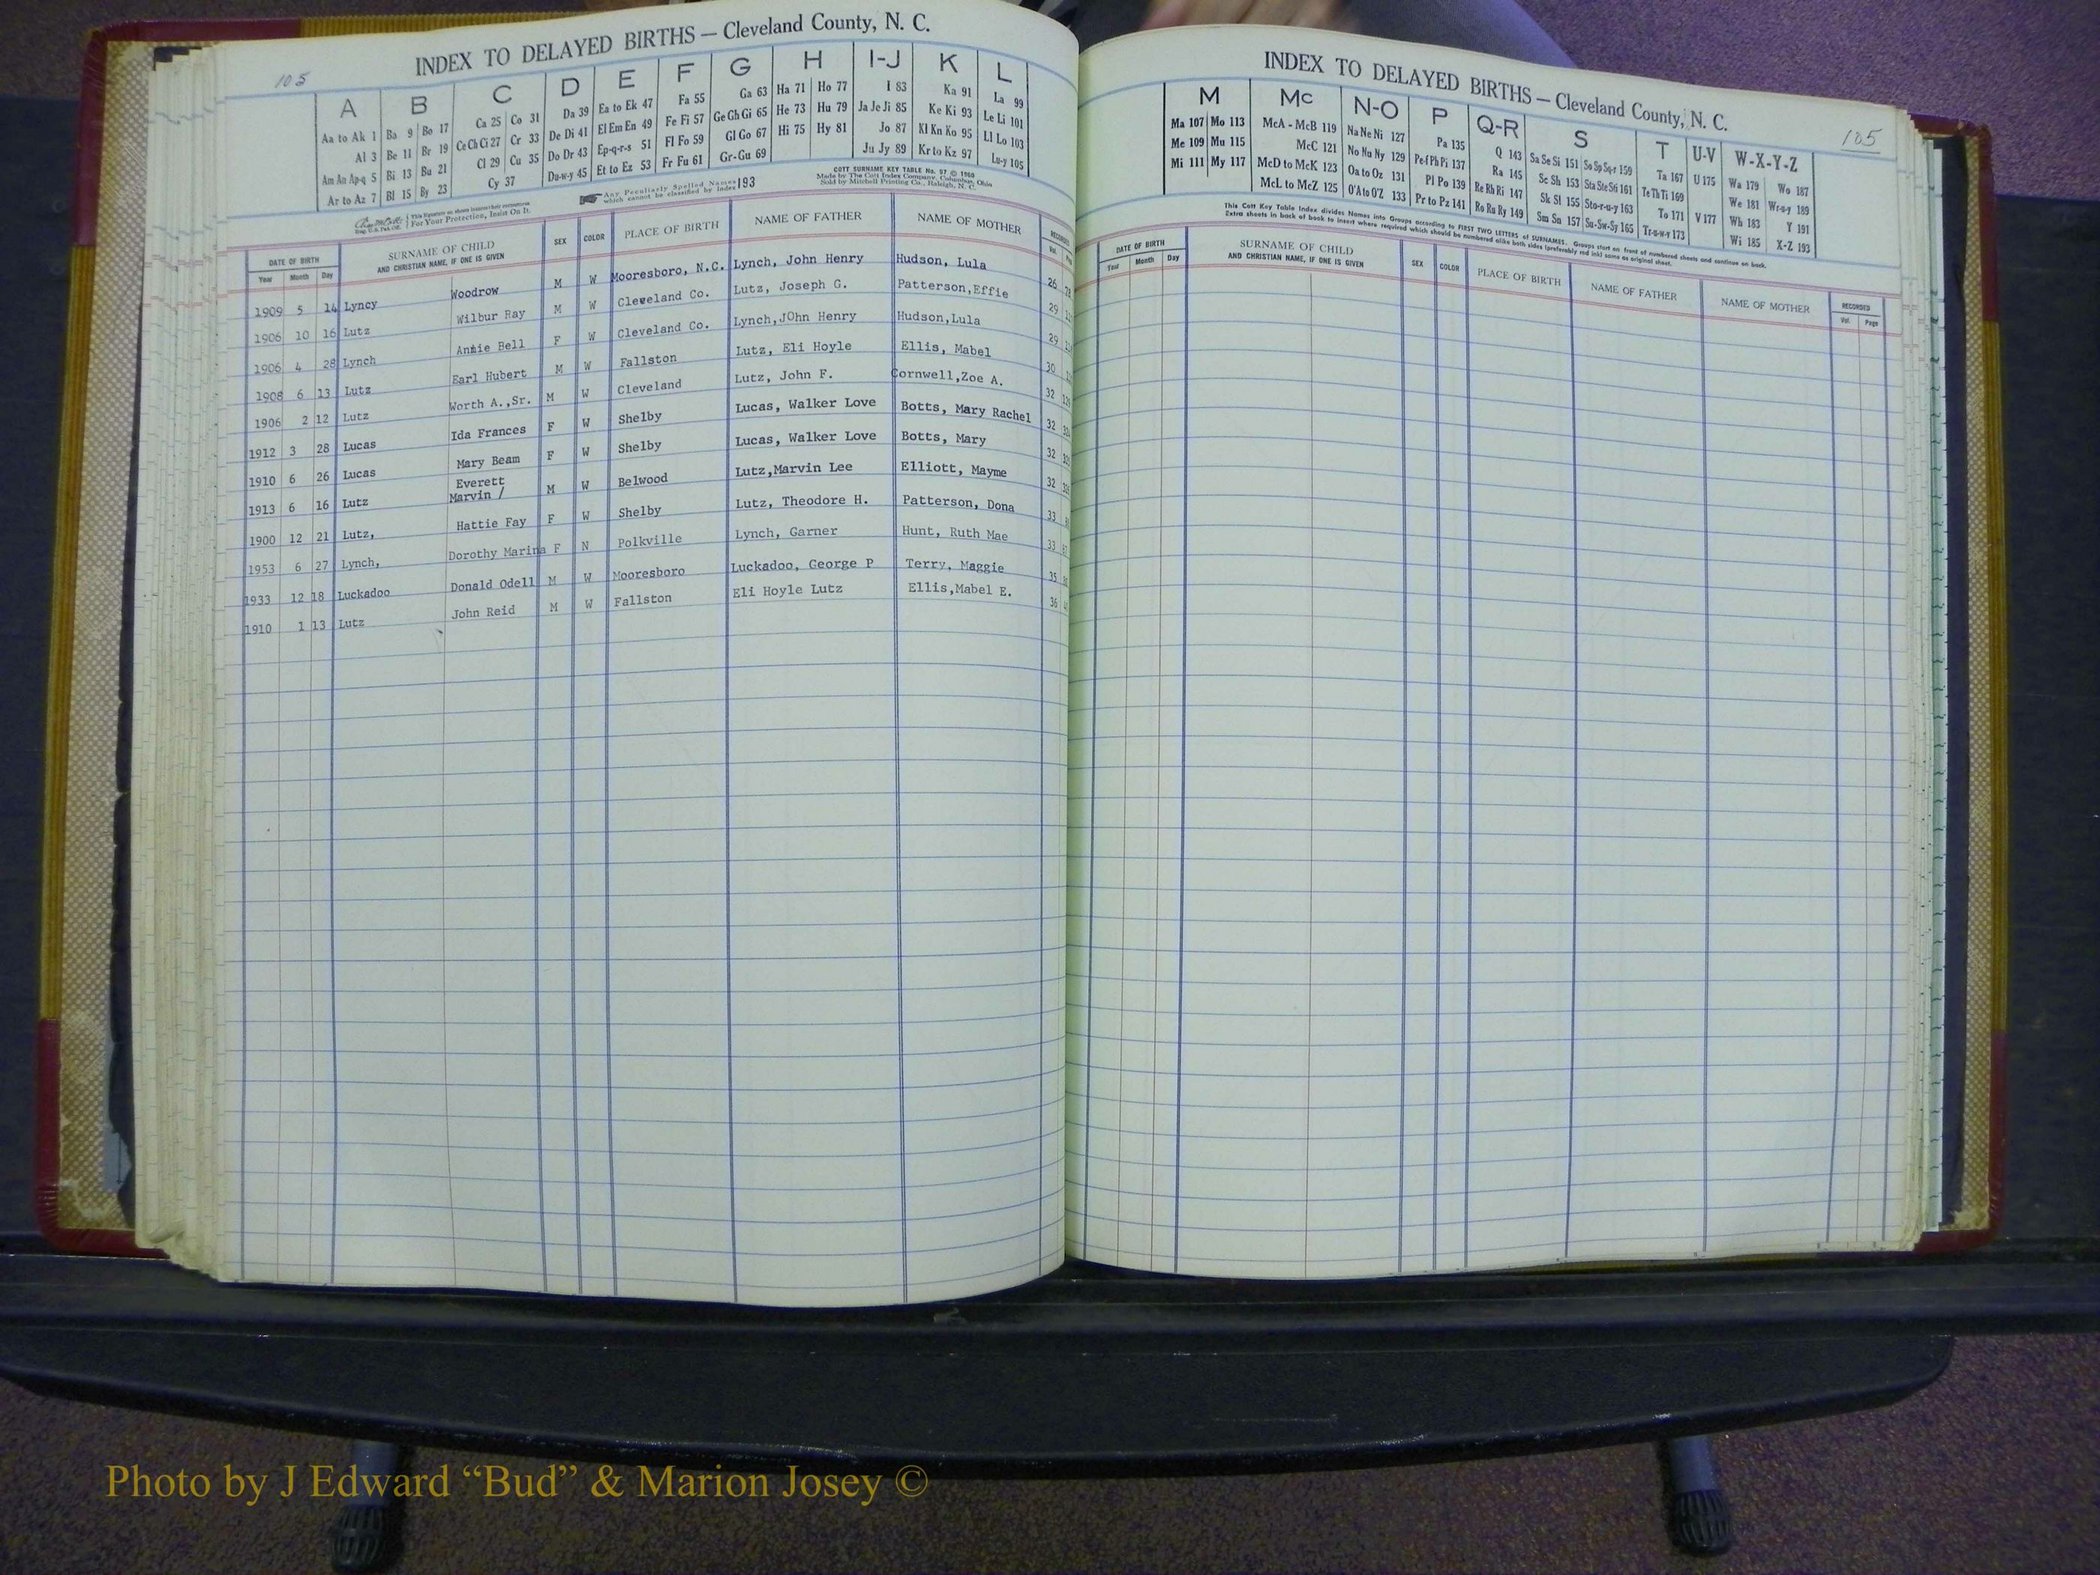 INDEX TO DELAYED BIRTHS — Cleveland County, N. C.
105
A B C D E F G H I-J K L
Aa to Ak 1 Ba 9 Bo 17 Ca 25 Co 31 Da 39 Ea to Ek 47 Fa 55 Ga 63 Ha 71 Ho 77 I 83 Ka 91 La 99
Al 3 Be 11 Br 19 Ce Ch Ci 27 Cr 33 De Di 41 El Em En 49 Fe Fi 57 Ge Gh Gi 65 He 73 Hu 79 Ja Je Ji 85 Ke Ki 93 Le Li 101
Am An Ap-q 5 Bi 13 Bu 21 Cl 29 Cu 35 Do Dr 43 Ep-q-r-s 51 Fl Fo 59 Gl Go 67 Hi 75 Hy 81 Jo 87 Kl Kn Ko 95 Ll Lo 103
Ar to Az 7 Bl 15 By 23 Cy 37 Du-w-y 45 Et to Ez 53 Fr Fu 61 Gr-Gu 69 Ju Jy 89 Kr to Kz 97 Lu-y 105
This Signature on sheets insures their correctness
For Your Protection, Insist On It.
Any Peculiarly Spelled Names which cannot be classified by Index 193
COTT SURNAME KEY TABLE No. 97 © 1968
Made by The Cott Index Company, Columbus, Ohio
Sold by Mitchell Printing Co., Raleigh, N. C.
DATE OF BIRTH Year Month Day SURNAME OF CHILD AND CHRISTIAN NAME, IF ONE IS GIVEN SEX COLOR PLACE OF BIRTH NAME OF FATHER NAME OF MOTHER
1909 5 14 Lyncy Woodrow M W Mooresboro, N.C. Lynch, John Henry Hudson, Lula 26
1906 10 16 Lutz Wilbur Ray M W Cleveland Co. Lutz, Joseph G. Patterson,Effie 29
1906 4 28 Lynch Annie Bell F W Cleveland Co. Lynch,JOhn Henry Hudson,Lula 29
1908 6 13 Lutz Earl Hubert M W Fallston Lutz, Eli Hoyle Ellis, Mabel 30
1906 2 12 Lutz Worth A.,Sr. M W Cleveland Lutz, John F. Cornwell,Zoe A. 32
1912 3 28 Lucas Ida Frances F W Shelby Lucas, Walker Love Botts, Mary Rachel 32
1910 6 26 Lucas Mary Beam F W Shelby Lucas, Walker Love Botts, Mary 32
1913 6 16 Lutz Everett Marvin / M W Belwood Lutz,Marvin Lee Elliott, Mayme 32
1900 12 21 Lutz, Hattie Fay F W Shelby Lutz, Theodore H. Patterson, Dona 33
1953 6 27 Lynch, Dorothy Marina F N Polkville Lynch, Garner Hunt, Ruth Mae 33
1933 12 18 Luckadoo Donald Odell M W Mooresboro Luckadoo, George P Terry, Maggie 35
1910 1 13 Lutz John Reid M W Fallston Eli Hoyle Lutz Ellis,Mabel E. 36
INDEX TO DELAYED BIRTHS — Cleveland County, N. C.
105
M Mc N-O P Q-R S T U-V W-X-Y-Z
Ma 107 Mo 113 McA - McB 119 Na Ne Ni 127 Pa 135 Q 143 Sa Se Si 151 So Sp Sq-r 159 Ta 167 U 175 Wa 179 Wo 187
Me 109 Mu 115 McC 121 No Nu Ny 129 Pe-f Ph Pi 137 Ra 145 Sc Sh 153 Sta Ste Sti 161 Te Th Ti 169 We 181 Wr-u-y 189
Mi 111 My 117 McD to McK 123 Oa to Oz 131 Pl Po 139 Re Rh Ri 147 Sk Sl 155 Sto-r-u-y 163 To 171 V 177 Wh 183 Y 191
McL to McZ 125 O'A to O'Z 133 Pr to Pz 141 Ro Ru Ry 149 Sm Sn 157 Su-Sw-Sy 165 Tr-u-w-y 173 Wi 185 X-Z 193
This Cott Key Table Index divides Names into Groups according to FIRST TWO LETTERS of SURNAMES. Groups start on front of numbered sheets and continue on back.
Extra sheets in back of book to insert where required which should be numbered alike both sides (preferably red ink) same as original sheet.
DATE OF BIRTH Year Month Day SURNAME OF CHILD AND CHRISTIAN NAME, IF ONE IS GIVEN SEX COLOR PLACE OF BIRTH NAME OF FATHER NAME OF MOTHER RECORDED Vol. Page
Photo by J Edward “Bud” & Marion Josey ©